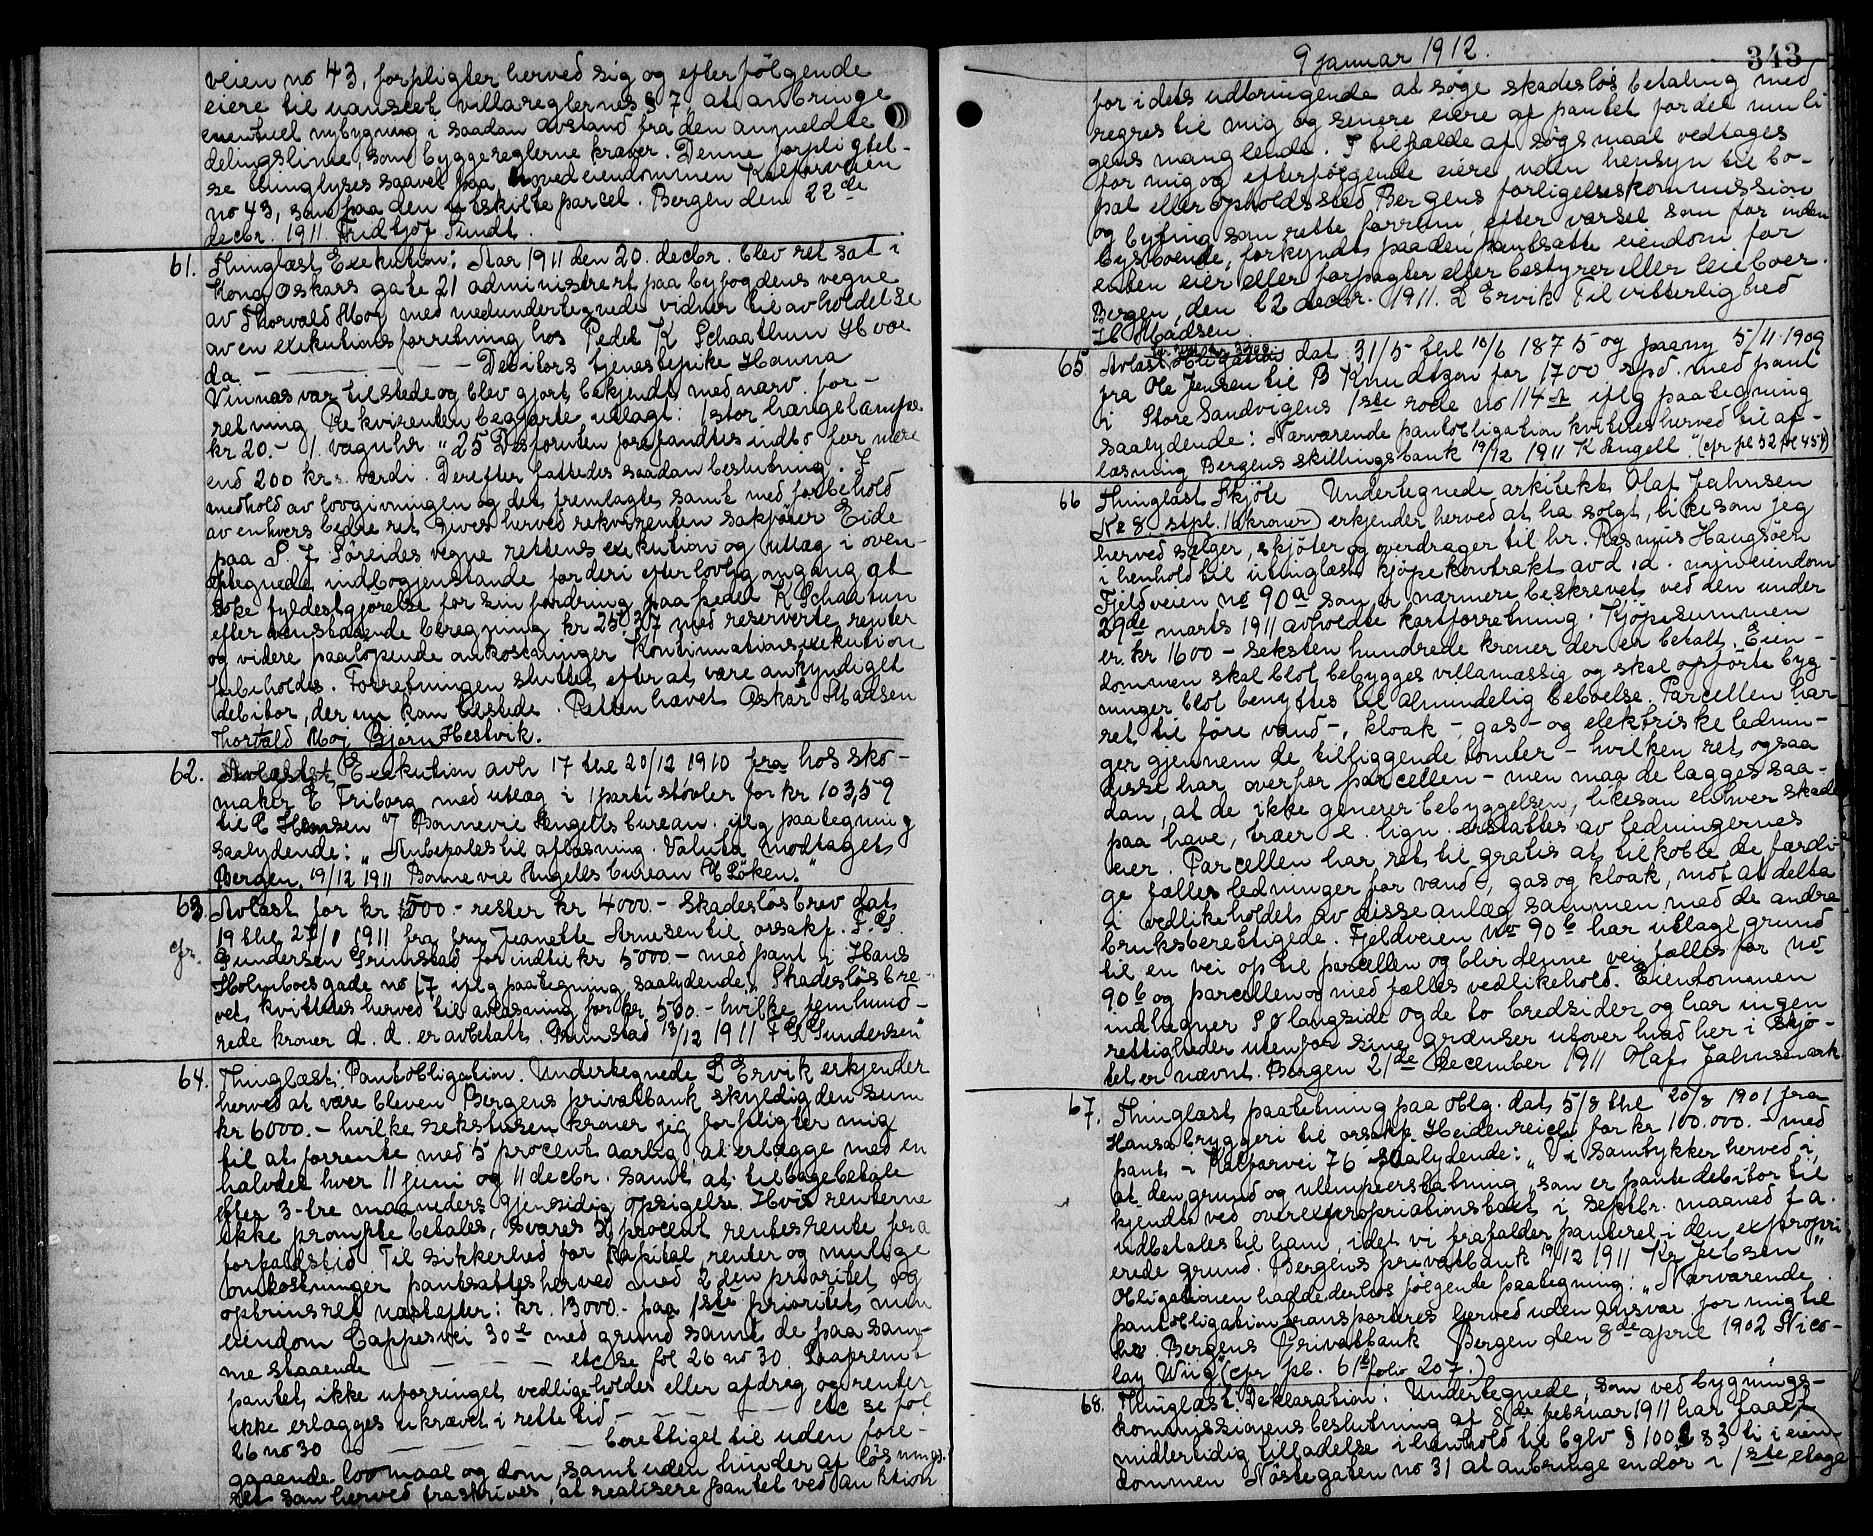 veien no 43, forpligter herved sig og efterfölgende
eiere til uanseet villareglernes § 7, at anbringe
eventuel nybygning i saadan avstand fra den anmeldte
delingslinie, som byggereglerne kræver. Denne forpligtel-
se thinglyses saavel paa hovedeiendommen Kalfarveien
no 43, som paa den utskilte parcel. Bergen den 22de
decbr. 1911. Fridtjof Sundt.
61. Thinglæst Exekution: Aar 1911 den 20. decbr. blev ret sat i
Kong Oskars gate 21 administrert paa byfogdens vegne
av Thorvald Moj med medundertegnede vidner til avholdelse
av en exekutionsforretning hos Peder K Schaathun Hvor
da — — — — Debitors tjenestepike Hanna
Vinnas var tilstede og blev gjort bekjendt med nærv. for-
retning Rekvirenten begjærte utlagt: 1 stor hængelampe
kr 20.- 1 væguhr " 25 Desforuten forefandtes indbo for mere
end 200 krs værdi. Derefter fattedes saadan beslutning. I
medhold av lovgivningen og det fremlagte samt med forbehold
av enhvers bedre ret gives herved rekvirenten sakförer Eide
paa S. J. Söreides vegne rettens exekution og utlæg i oven-
optegnede indbogjenstande forderi efter lovlig omgang at
söke fyldestgjörelse for sin fordring paa peder K Schaatun
efter ovenstaaende beregning kr 250,37 med reserverte renter
og videre paalöpende omkostninger Kontinuationsexekution
forbeholdes. Forretningen sluttet efter at være ankyndiget
debitor, der nu kom tilstede. Retten hævet Oskar Madsen
Thorvald Moj Bjarn Hestvik.
62. Avlæst Exekution avh 17 thl 20/12 1910 fra hos sko-
maker E Friborg med utlæg i 1 parti stövler for kr 103,59
til C Hansen V Bonnevie Angells bureau iflg paategning
saalydende: „Anbefales til aflæsning. Valuta modtaget
Bergen, 19/12 1911 Bonnevie Angells bureau H Löken."
63. Avlæst for kr 1500.- rester kr 4000.- Skadeslösbrev dat
19 thl 27/1 1911 fra fru Jeanette Arnesen til orsakf. F. G.
cfr. Gundersen Grimstad for indtil kr 5000.- med pant i Hans
Holmboesgade no 17 iflg paategning saalydende: „Skadeslösbre-
vet kvitteres herved til avlæsning for kr. 500.- hvilke femhund-
rede kroner d. d. er avbetalt. Grimstad 18/12 1911 F G Gundersen"
64. Thinglæst. Pantobligation. Undertegnede L Ervik erkjender
herved at være bleven Bergens privatbank skyldig den sum
kr 6000.- hvilke sekstusen kroner jeg forpligter mig
til at forrente med 5 procent aarlig, at erlægge med en
halvdel hver 11 juni og 11 decbr. samt at tilbagebetale
efter 3-tre maaneders gjensidig opsigelse. Hvis renterne
ikke prompte betales, svares procent rentesrente fra
forfaldstid. Til sikkerhed for kapital renter og mulige
omkostninger pantsættes herved med 2den prioritet og
optrinsret næstefter: kr. 13000.- paa 1ste prioritet, min
eiendom Cappesvei 30 med grund samt de paa sam-
me staaende — — — — etc se fol 26 no 30. Saafremt
pantet ikke uforringet vedligeholdes eller afdrag og renter
ikke erlægges ukrævet i rette tid — — — etc se fol
26 no 30 — — — — berettiget til uden fore-
gaaende lovmaal og dom, samt uden hinder af lösnings-
ret som herved fraskrives, at realisere pantet ved auktion
9 januar 1912. 343
for i dets udbringende at söge skadeslös betaling med
regres til mig og senere eiere af pantet for det muli
gens manglende. I tilfælde af sögsmaal vedtages
for mig og efterfölgende eiere uden hensyn til bo-
pæl eller opholdssted Bergens forligelseskommission
og byting som rette forum, efter varsel som for inden
bysboende, forkyndt paa den pantsatte eiendom for
enten eier eller forpagter eller bestyrer eller leieboer.
Bergen, den 12 decbr. 1911. L Ervik Til vitterlighed
H Madsen
65 Avlæst Obligation dat. 31/5 thl 10/6 1875 og paany 5/11-1909
fra Ole Jensen til B Knudtzon for 1700 spd. med pant
i Store Sandvigens 1ste rode no 114 iflg paategning
saalydende: Nærværende pantobligation kvitteres herved til af-
læsning Bergens skillingsbank 19/12 1911 K Angell." (cfr pl 52 fol 454)
66 Thinglæst Skjöte Undertegnede arkitekt Olaf Jahnsen
Kr 8. stpl. 16 kroner) erkjender herved at ha solgt, likesom jeg
herved sælger, skjöter og overdrager til hr. Rasmus Haugsöen
i henhold til utinglæst kjöpekontrakt av d. d. min eiendom
Fjeldveien no 90a som er nærmere beskrevet ved den under
29de marts 1911 avholdte kartforretning. Kjöpesummen
er kr 1600 - seksten hundrede kroner der er betalt. Eien-
dommen skal blot bebygges villamæssig og skal opförte byg-
ninger blot benyttes til almindelig beboelse. Parcellen har
ret til före vand-, kloak-, gas- og elektriske lednin-
ger gjennem de tilliggende tomter - hvilken ret ogsaa
disse har overfor parcellen - men maa de lægges saa-
dan, at de ikke generer bebyggelsen, likesom enhver skade
paa have, træer e. lign. erstattes av ledningernes
eier. Parcellen har ret til gratis at tilkoble de færdi-
ge fælles ledninger for vand, gas og kloak, mot at delta
i vedlikeholdet av disse anlæg sammen med de andre
bruksberettigede. Fjeldveien no 90b har utlagt grund
til en vei op til parcellen og blir denne vei fælles for no
90b og parcellen og med fælles vedlikehold. Eiendommen
indhegner S O langside og de to bredsider og har ingen
rettigheder utenfor sine grænser utover hvad her i skjö-
tet er nævnt. Bergen 21de December 1911 Olaf Jahnsen ark
67. Thinglæst paategning paa oblg. dat 5/8 thl 20/8 1901 fra
Hansa bryggeri til orsakf. Heidenreich for kr 100.000. - med
pant i Kalfarvei 76 saalydende: „Vi samtykker herved i,
at den grund og ulempeerstatning, som er pantedebitor til
kjendt ved overexpropriationstaxt i septbr. maaned f a.
udbetales til ham, idet vi frafalder panteret i den expropri
erede grund. Bergens privatbank 19/12 1911 Kr Jebsen"
Obligationen hadde derhos fölgende paategning: „Nærværende
pantobligation transporteres herved uden ansvar for mig til
hr. Bergens Privatbank Bergen den 8de april 1902 Nico-
lay Wiig" (cfr pl. 61b folio 207.)
68. Thinglæst Deklaration: Undertegnede, som ved bygnings-
kommissionens beslutning af 8de februar 1911 har faaet
midlertidig tilladelse i henhold til bglv § 100 § 3 ti i eien-
dommen Nöstegaten no 31 at anbringe en dör i 1ste etage